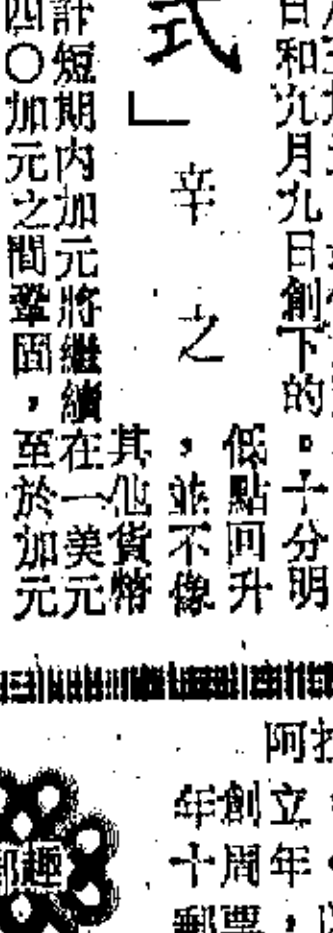 日和九月九日創下的。十分明
低點回升
，並不像
其他貨幣
式」
辛之
計短期內加元將繼續在一美元
四〇加元之間鞏固，至於加元
阿拉
年創立
十周年
郵票，
郵趣